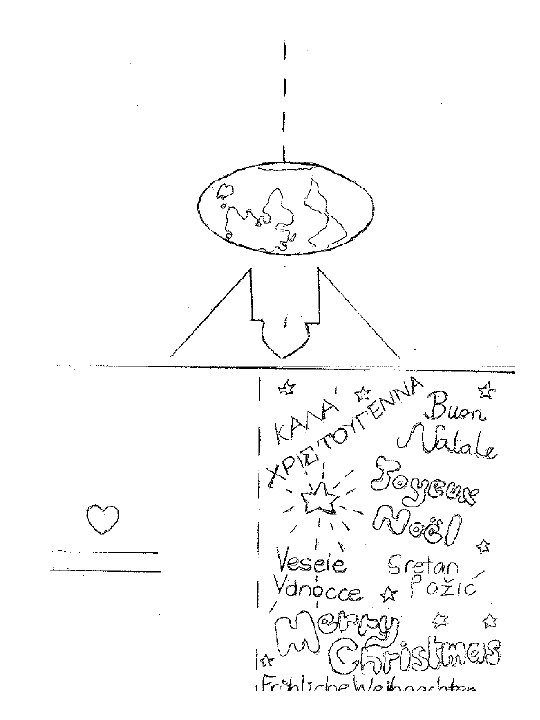 ΚΑΛΑ
ΧΡΙΣΤΟΥΓΕΝΝΑ
Buon
Natale
Joyeux
Noël
Veselé
Vánocce
Sretan
Božić
Merry
Christmas
Fröhliche Weihnachten